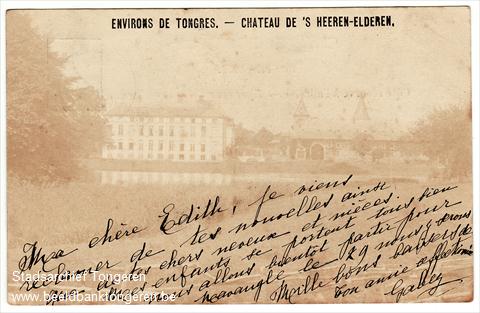 ENVIRONS DE TONGRES. — CHATEAU DE 'S HEEREN-ELDEREN.
Ma chère Edith, je viens
réclamer de tes nouvelles ainsi
que de chers neveux et nièces.
enfants se portent tous bien
nous allons bientôt partir pour
le 29 nous serons
Mille bons baisers de
ton amie affectionnée
Stadsarchief Tongeren
www.beeldbanktongeren.be